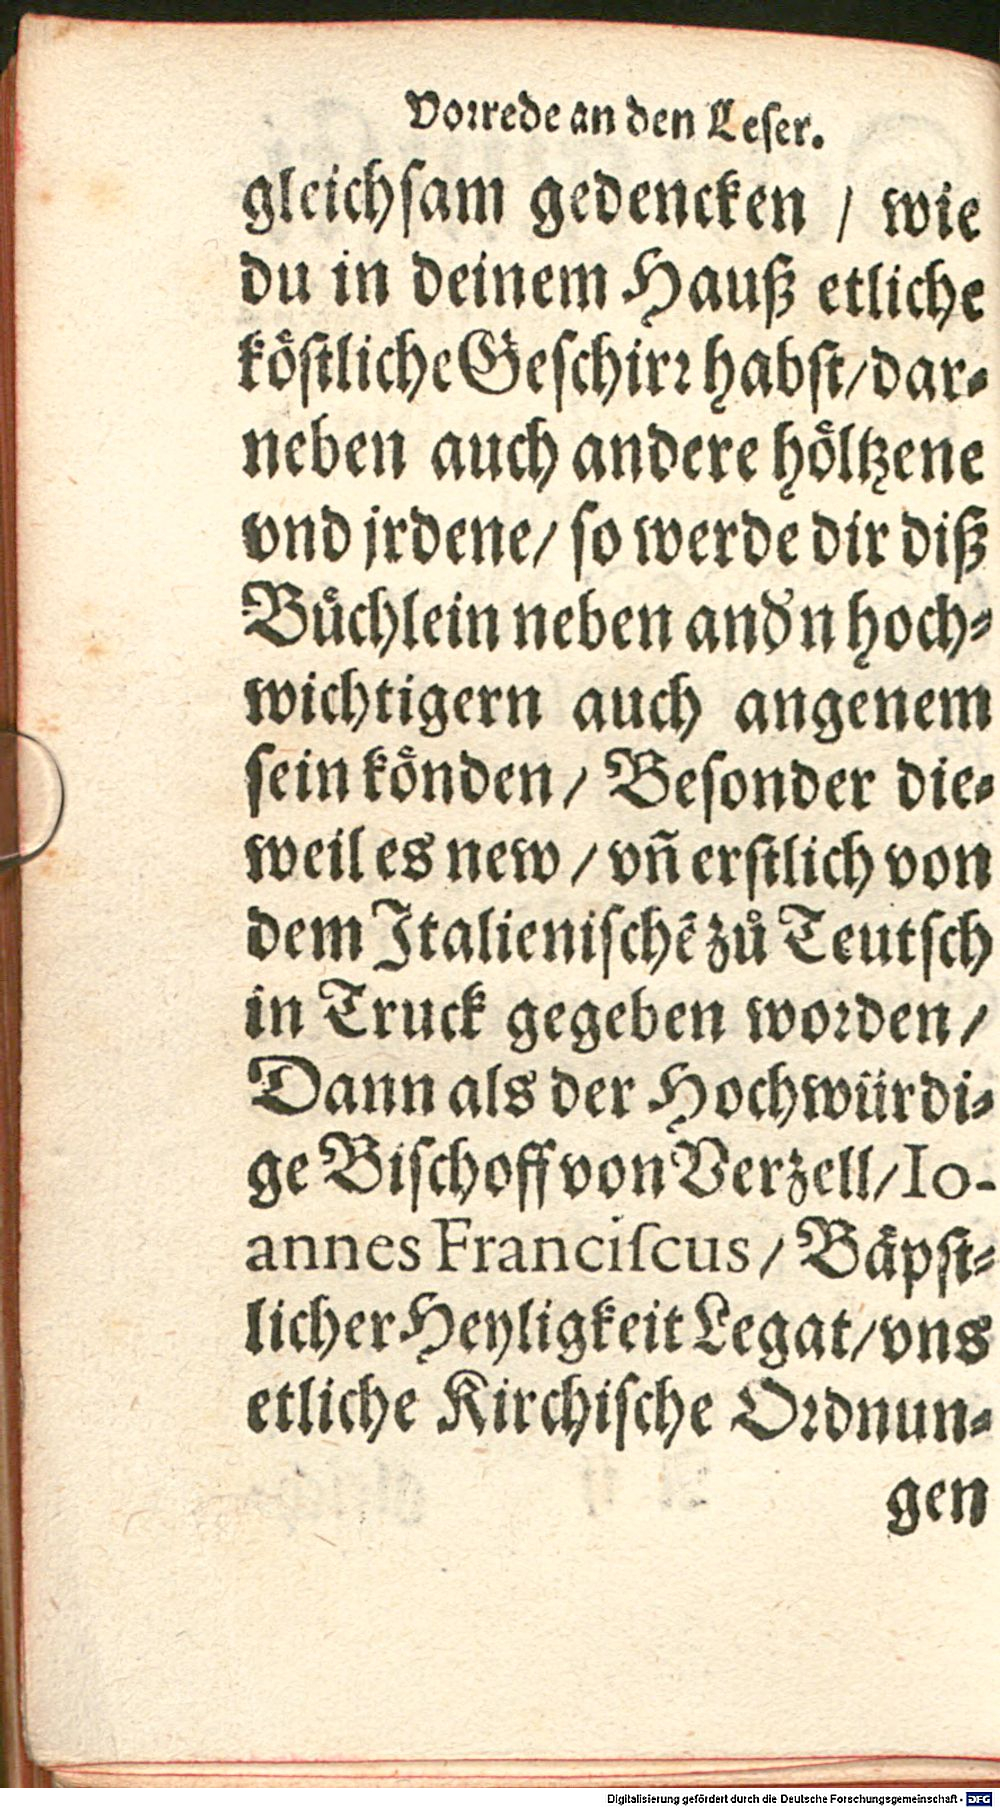 Vorrede an den Leser.
gleichſam gedencken / wie
du in deinem Hauß etliche
koͤſtliche Geſchirꝛ habſt/dar⸗
neben auch andere hoͤltzene
vnd jrdene/ ſo werde dir diß
Buͤchlein neben and'n hoch⸗
wichtigern auch angenem
ſein koͤnden / Beſonder die⸗
weil es new / vñ erſtlich von
dem Italieniſchē zů Teutſch
in Truck gegeben woꝛden /
Dann als der Hochwürdi⸗
ge Biſchoff von Verzell/ Io-
annes Franciſcus / Baͤpſt⸗
licher Heyligkeit Legat/ vns
etliche Kirchiſche Oꝛdnun⸗
gen
Digitalisierung gefördert durch die Deutsche Forschungsgemeinschaft - DFG